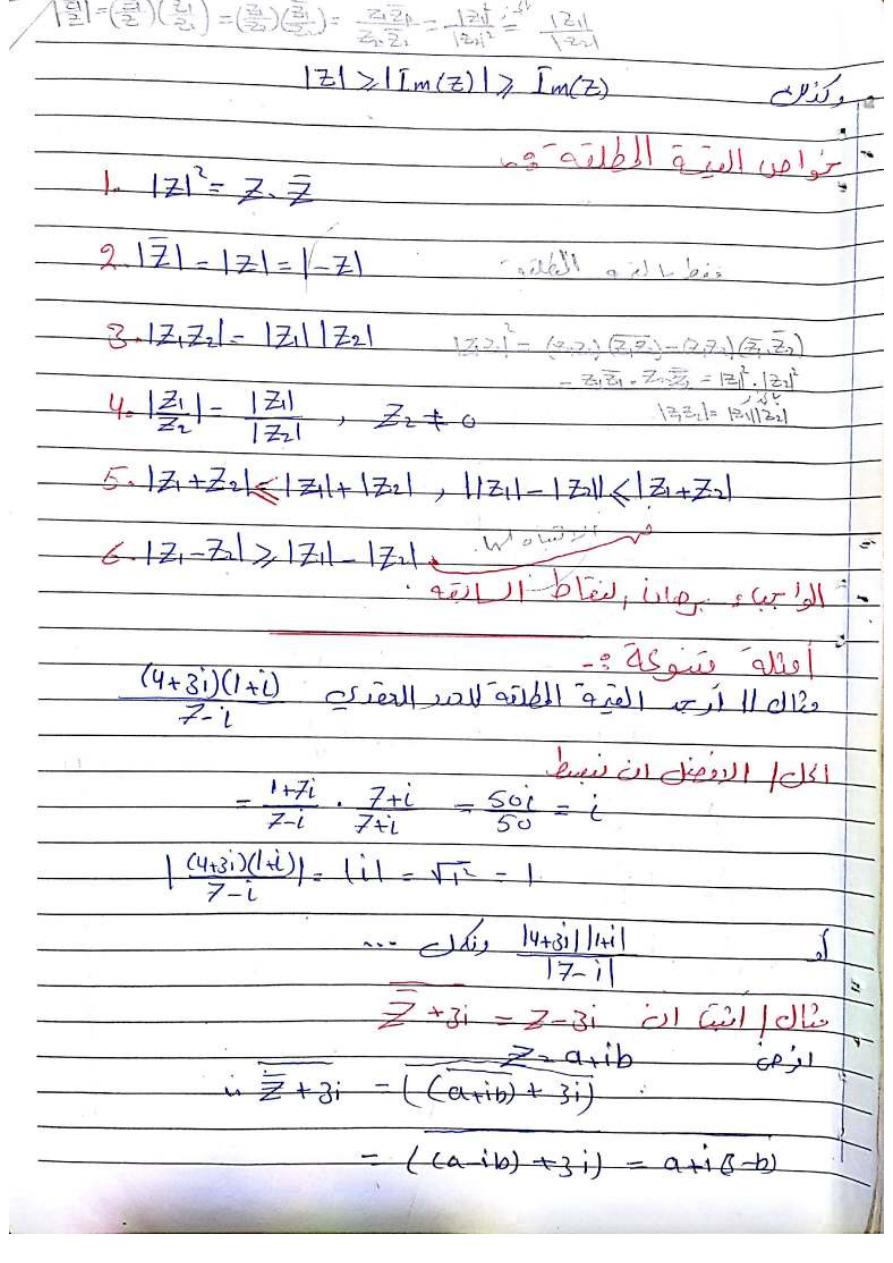 |z₁/z₂|² = (z₁/z₂)(z̄₁/z̄₂) = z₁z̄₁/z₂z̄₂ = |z₁|²/|z₂|² = |z₁|/|z₂|
وكذلك |Z| ≥ |Im(Z)| ≥ Im(Z)
خواص القيمة المطلقة :-
1. |Z|² = Z . Z̄
2. |Z̄| = |Z| = |-Z|
3. |Z₁Z₂| = |Z₁| |Z₂|
|Z₁Z₂|² = (Z₁Z₂)(Z̄₁Z̄₂)
= Z₁Z̄₁ . Z₂Z̄₂ = |Z₁|² . |Z₂|²
|Z₁Z₂| = |Z₁||Z₂|
4. |Z₁/Z₂| = |Z₁|/|Z₂| , Z₂ ≠ 0
5. |Z₁+Z₂| ≤ |Z₁| + |Z₂| , ||Z₁| - |Z₂|| ≤ |Z₁+Z₂|
6. |Z₁-Z₂| ≥ |Z₁| - |Z₂|
الواجب برهان لنقاط السابقه .
أمثلة متنوعة :-
مثال // أوجد القيمة المطلقة للعدد العقدي (4+3i)(1+i)/7-i
الحل / الافضل ان نبسط
= 1+7i/7-i . 7+i/7+i = 50i/50 = i
|(4+3i)(1+i)/7-i| = |i| = √1² = 1
أو |4+3i| |1+i|/|7-i| ونكمل ...
مثال / اثبت ان Z̄+3i = Z-3i
نفرض Z = a+ib
∴ Z̄+3i = ((a+ib) + 3i)
= ((a-ib) + 3i) = a+i(3-b)